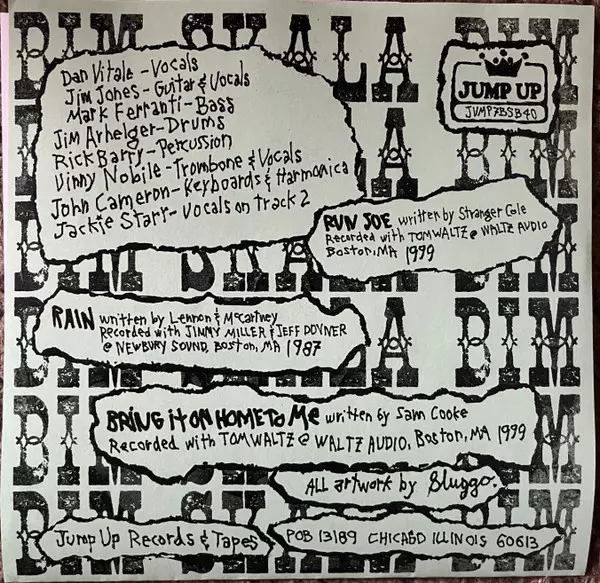 BIM SKALA BIM
Dan Vitale - Vocals
Jim Jones - Guitar & Vocals
Mark Ferranti - Bass
Jim Arhelger - Drums
Rick Barry - Percussion
Vinny Nobile - Trombone & Vocals
John Cameron - Keyboards & Harmonica
Jackie Starr - Vocals on track 2
JUMP UP
JUMP7BSB40
RUN JOE written by Stranger Cole
Recorded with TOM WALTZ @ WALTZ AUDIO
Boston, MA 1999
RAIN written by Lennon & McCartney
Recorded with JIMMY MILLER & JEFF DOVNER
@ NEWBURY SOUND, Boston, MA 1987
BRING it ON HOME To Me written by Sam Cooke
Recorded with TOM WALTZ @ WALTZ AUDIO, Boston, MA 1999
ALL artwork by Sluggo.
Jump Up Records & Tapes
POB 13189 CHICAGO ILLINOIS 60613